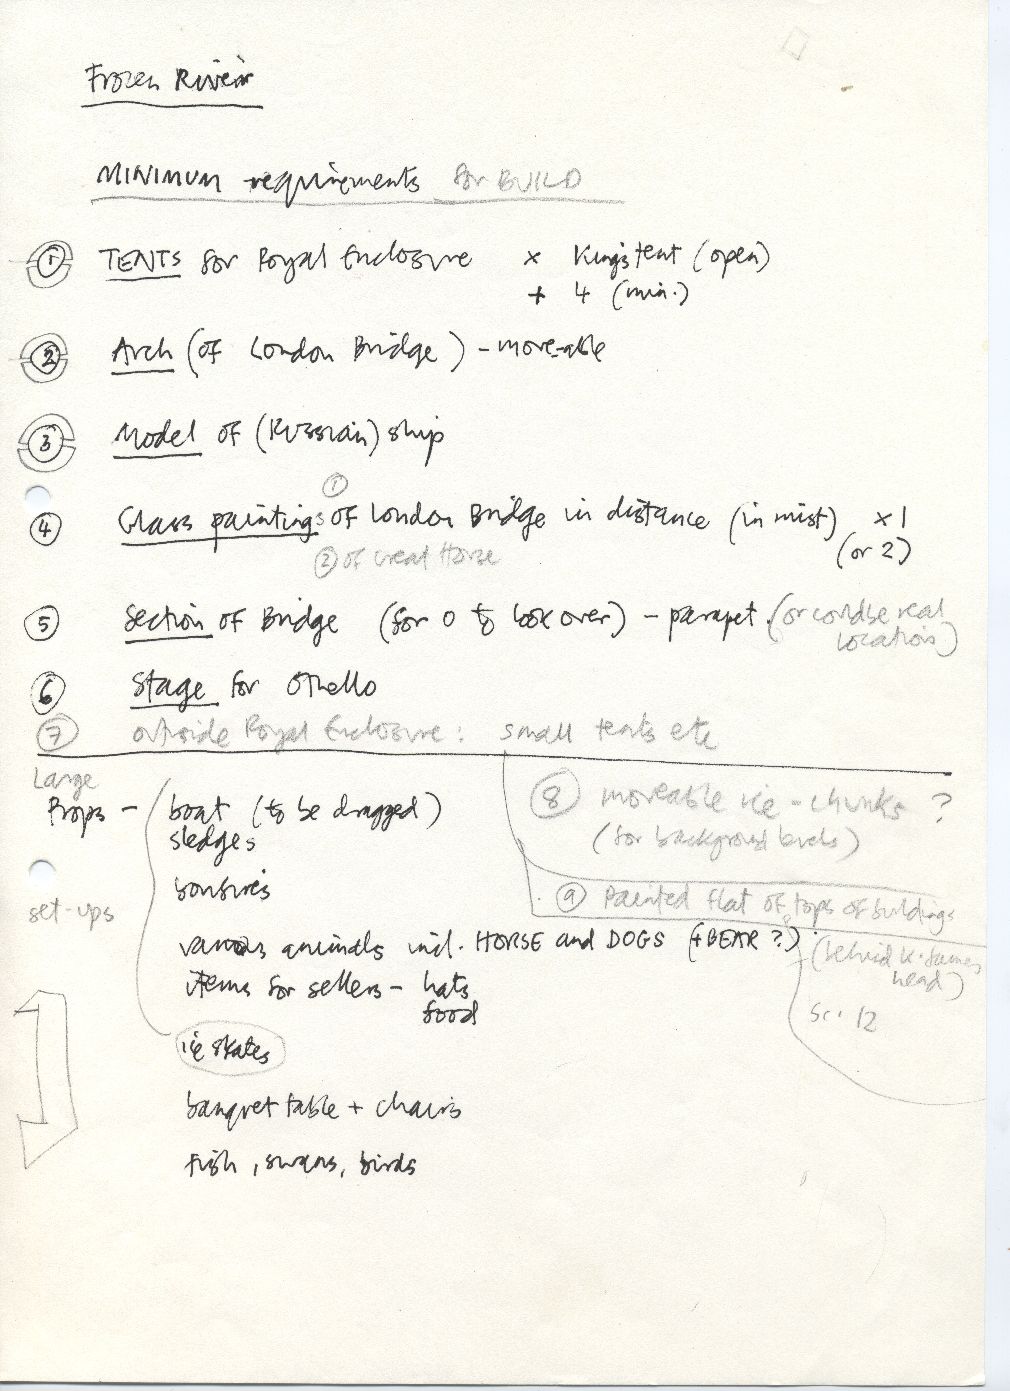 Frozen River
MINIMUM requirements for BUILD
① TENTS for Royal Enclosure x King's tent (open)
+ 4 (min.)
② Arch (of London Bridge) - move-able
③ Model of (Russian) ship
①
④ Glass paintings of London Bridge in distance (in mist) x 1
(or 2)
② of Great House
⑤ Section of Bridge (for O to look over) - parapet. (or could be real
location)
⑥ Stage for Othello
⑦ outside Royal Enclosure: small tents etc
Large
Props - boat (to be dragged)
sledges
⑧ moveable ice-chunks ?
(for background levels)
bonfires
⑨ Painted flat of tops of buildings
set-ups
various animals incl. HORSE and DOGS (+BEAR ?)
(behind K. James
head)
items for sellers - hats
food
Sc. 12
ice skates
banquet table + chairs
Fish, swans, birds